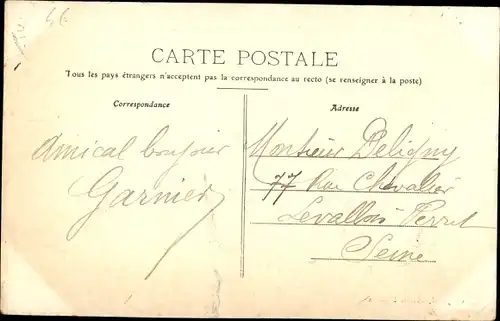 CARTE POSTALE
Tous les pays étrangers n'acceptent pas la correspondance au recto (se renseigner à la poste)
Correspondance
Adresse
Amical bonjour
Garnier
Monsieur Deligny
77 Rue Chevalier
Levallois Perret
Seine